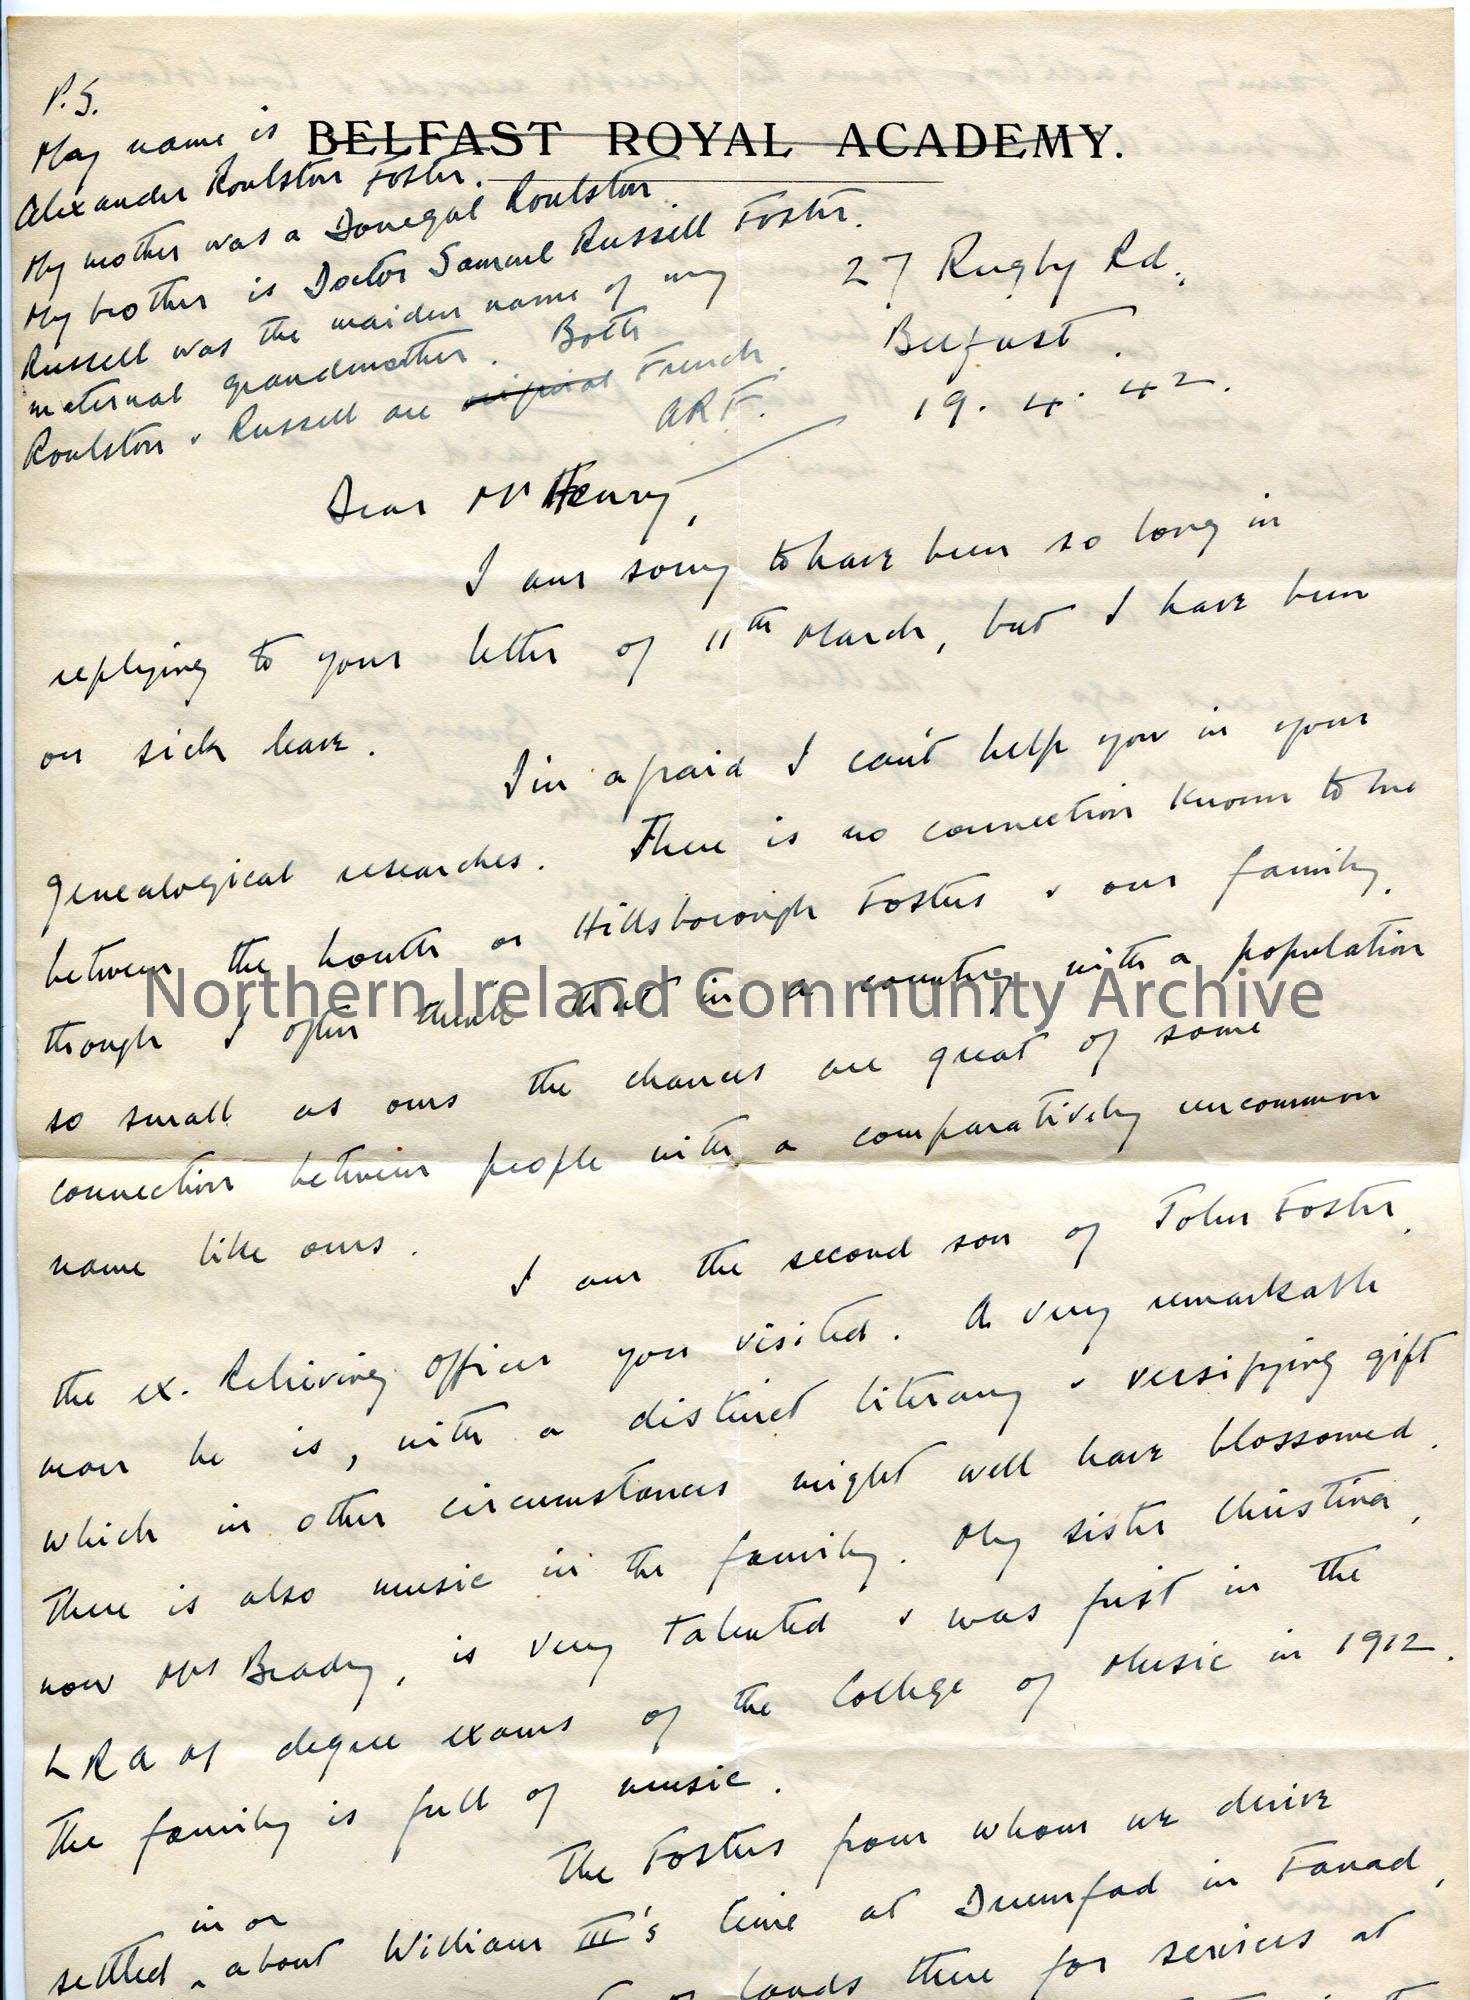 P.S.
My name is
Alexander Roulston Foster.
My mother was a Donegal Roulston.
My brother is Doctor Samuel Russell Foster.
Russell was the maiden name of my
maternal grandmother. Both
Roulston & Russell are original French.
ARF.
BELFAST ROYAL ACADEMY.
27 Rugby Rd.,
Belfast.
19. 4. 42.
Dear Mr Henry,
I am sorry to have been so long in
replying to your letter of 11th March, but I have been
on sick leave.
I'm afraid I can't help you in your
genealogical researches. There is no connection known to me
between the Louth or Hillsborough Fosters & our family,
though I often think that in a country with a population
so small as ours the chances are great of some
connection between people with a comparatively uncommon
name like ours.
I am the second son of John Foster,
the ex. Relieving Officer you visited. A very remarkable
man he is, with a distinct literary & versifying gift
which in other circumstances might well have blossomed.
There is also music in the family. My sister Christina,
now Mrs Brady, is very talented & was first in the
LRA of degree exams of the College of Music in 1912.
The family is full of music.
The Fosters from whom we derive
settled in or about William III's time at Drumfad in Fanad,
of lands there for services at
Northern Ireland Community Archive